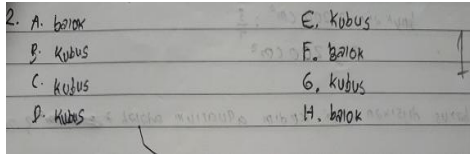 2. A. balok
B. Kubus
C. kubus
D. Kubus
E. Kubus
F. Balok
G. Kubus
H. balok